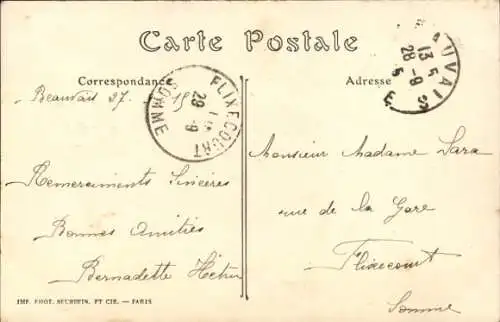 Carte Postale
Correspondance
Adresse
Beauvais 27. 15
FLIXECOURT
SOMME
29 -9
BEAUVAIS
13 5
28 -8
Remerciments Sincères
Bonnes Amitiés
Bernadette
Monsieur Madame Sara
rue de la Gare
Flixecourt
Somme
IMP. PHOT. NEURDEIN. ET CIE. — PARIS